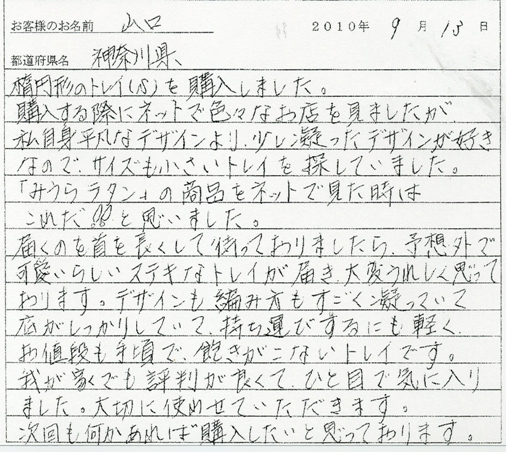 お客様のお名前 山口 2010年 9月 13日
都道府県名 神奈川県、
楕円形のトレイ(S)を購入しました。
購入する際にネットで色々なお店を見ましたが
私自身平凡なデザインより、少し凝ったデザインが好き
なので、サイズも小さいトレイを探していました。
「みうらラタン」の商品をネットで見た時は
これだ!!と思いました。
届くのを首を長くして待っておりましたら、予想外で
可愛いらしいステキなトレイが届き、大変うれしく思って
おります。デザインも編み方もすごく凝っていて
底がしっかりしていて、持ち運びするにも軽く、
お値段も手頃で、飽きがこないトレイです。
我が家でも評判が良くて、ひと目で気に入り
ました。大切に使わせていただきます。
次回も何かあれば購入したいと思っております。